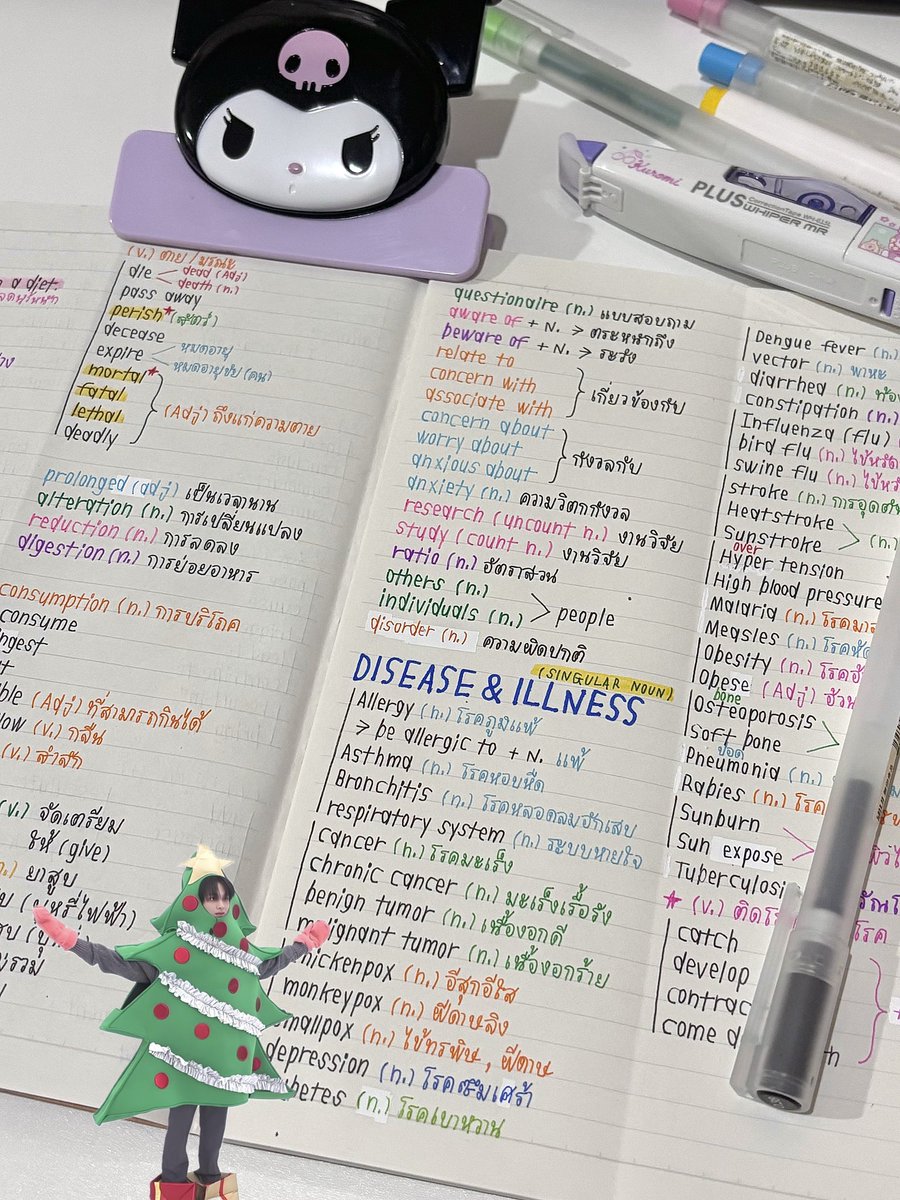 Kuromi
PLUS
Correction Tape
WHIPER MR
a diet.
(v.) ตาย / มรณะ
die
dead (Adj)
death (n.)
pass away
perish* (สัตว์)
decease
expire
หมดอายุ
หมดอายุขัย (คน)
mortal*
fatal
lethal
(Adj) ถึงแก่ความตาย
deadly
prolonged (adj) เป็นเวลานาน
alteration (n.) การเปลี่ยนแปลง
reduction (n.) การลดลง
digestion (n.) การย่อยอาหาร
consumption (n.) การบริโภค
consume
ngest
ble (Adj) ที่สามารถกินได้
low (v.) กลืน
(v.) สำลัก
(v.) จัดเตรียม
ให้ (give)
ยาสูบ
questionaire (n.) แบบสอบถาม
aware of + N. > ตระหนักถึง
beware of + N. > ระวัง
relate to
concern with
เกี่ยวข้องกับ
associate with
concern about
worry about
กังวลกับ
anxious about
anxiety (n.) ความวิตกกังวล
research (uncount n.) งานวิจัย
study (count n.) งานวิจัย
ratio (n.) อัตราส่วน
others (n.)
people
individuals (n.)
disorder (n.) ความผิดปกติ
DISEASE & ILLNESS
(SINGULAR NOUN)
Allergy (n.) โรคภูมิแพ้
> be allergic to + N. แพ้
Asthma (n.) โรคหอบหืด
Bronchitis (n.) โรคหลอดลมอักเสบ
respiratory system (n.) ระบบหายใจ
cancer (n.) โรคมะเร็ง
chronic cancer (n.) มะเร็งเรื้อรัง
benign tumor (n.) เนื้องอกดี
malignant tumor (n.) เนื้องอกร้าย
hickenpox (n.) อีสุกอีใส
monkeypox (n.) ฝีดาษลิง
smallpox (n.) ไข้ทรพิษ, ฝีดาษ
depression (n.) โรคซึมเศร้า
betes (n.) โรคเบาหวาน
Dengue fever (n.)
vector (n.) พาหะ
diarrhea (n.)
constipation (n.)
Influenza (flu)
bird flu (n.) ไข้หวัด
swine flu (n.) ไข้หวั
stroke (n.) การอุดตั
Heatstroke
(n.)
Sunstroke
over
Hyper tension
High blood pressure
Malaria (n.) โรคมาล
Measles (n.) โรคหัด
Obesity (n.) โรคอ้ว
Obese (Adj) อ้วน
bone
Osteoporosis
Soft bone
ปอด
Pneumonia (n.)
Rabies (n.) โรค
Sunburn
Sun expose
Tuberculosi
* (v.) ติดโร
โรค
catch
develop
contrac
come d